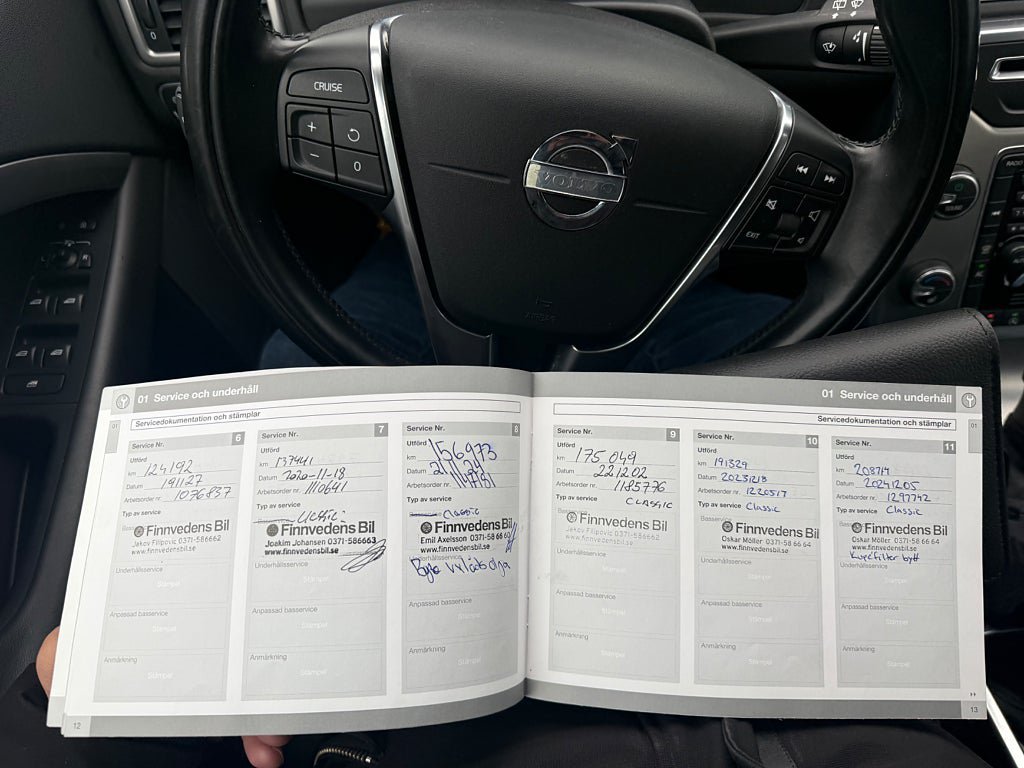 CRUISE
+
−
0
VOLVO
EXIT
AIRBAG
01 Service och underhåll
Servicedokumentation och stämplar
01
Service Nr. 6
Utförd
km 124192
Datum 191127
Arbetsorder nr. 1076837
Typ av service
Finnvedens Bil
Jakov Filipovic 0371-586662
www.finnvedensbil.se
Underhållsservice
Stämpel
Anpassad basservice
Stämpel
Anmärkning
Stämpel
Service Nr. 7
Utförd
km 137441
Datum 2020-11-18
Arbetsorder nr. 1110641
Typ av service
Basservice Classic
Finnvedens Bil
Joakim Johansen 0371-586663
www.finnvedensbil.se
Underhållsservice
Stämpel
Anpassad basservice
Stämpel
Anmärkning
Stämpel
Service Nr. 8
Utförd
km 156973
Datum
Arbetsorder nr.
Typ av service
Basservice Classic
Finnvedens Bil
Emil Axelsson 0371-58 66 64
www.finnvedensbil.se
Underhållsservice
Byte växellådsolja
Stämpel
Anpassad basservice
Stämpel
Anmärkning
Stämpel
12
01 Service och underhåll
Servicedokumentation och stämplar
01
Service Nr. 9
Utförd
km 175049
Datum 221202
Arbetsorder nr. 1185776
Typ av service
CLASSIC
Basservice
Finnvedens Bil
Jakov Filipovic 0371-586662
www.finnvedensbil.se
Underhållsservice
Stämpel
Anpassad basservice
Stämpel
Anmärkning
Stämpel
Service Nr. 10
Utförd
km 191329
Datum 20231213
Arbetsorder nr. 1220517
Typ av service Classic
Basservice
Finnvedens Bil
Oskar Möller 0371-58 66 64
www.finnvedensbil.se
Underhållsservice
Stämpel
Anpassad basservice
Stämpel
Anmärkning
Stämpel
Service Nr. 11
Utförd
km 208714
Datum 20241205
Arbetsorder nr. 1297742
Typ av service Classic
Basservice
Finnvedens Bil
Oskar Möller 0371-58 66 64
www.finnvedensbil.se
Kupefilter bytt
Underhållsservice
Stämpel
Anpassad basservice
Stämpel
Anmärkning
Stämpel
13